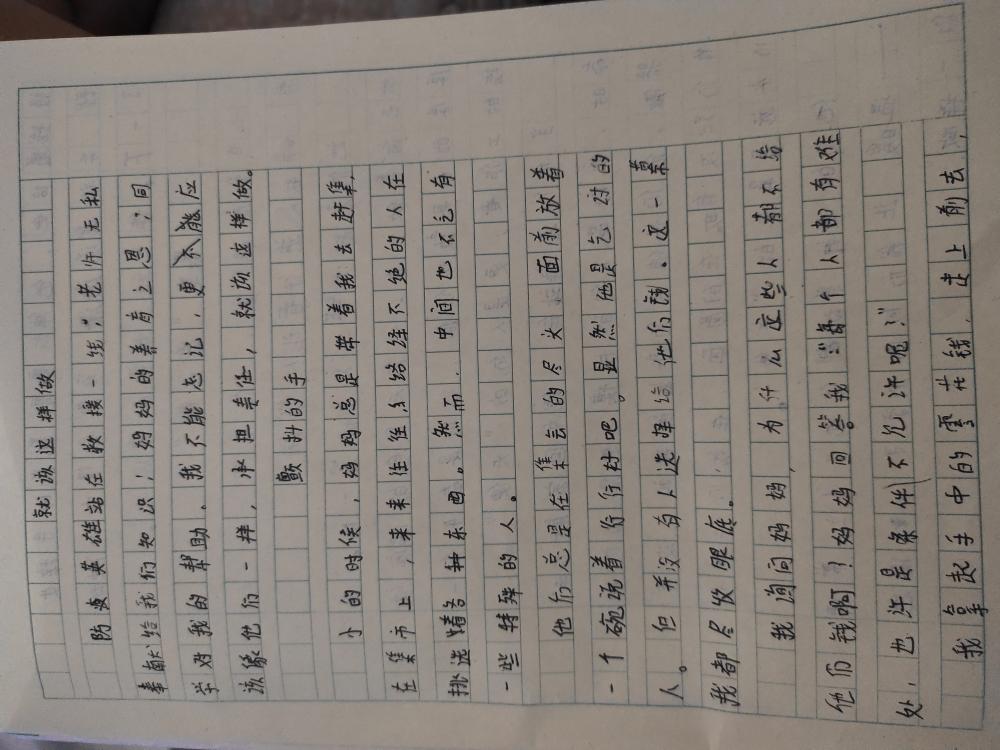 就该这样做
防疫英雄站在救援一线；老师无私
奉献给我们知识；妈妈的养育之恩；同
学对我的帮助。我不能忘记，更不能应
该像他们一样，承担责任，就该这样做。
颤抖的手
小的时候，妈妈总是带着我去赶集，
在集市上，来来往往络绎不绝的人在
挑选着各种东西。然而，中间也不乏有
一些特殊的人。
他们总是在集会的尽头面前放着
一个碗说着行行好吧。显然他是乞讨的
人。但并没有人选择给他们钱。这一幕
我都尽收眼底。
我询问妈妈，为什么这些人都不给
他们钱啊？妈妈回答我："每个人都有难
处，也许是条件不允许呢？"
我拿起手中的零花钱，走上前去，